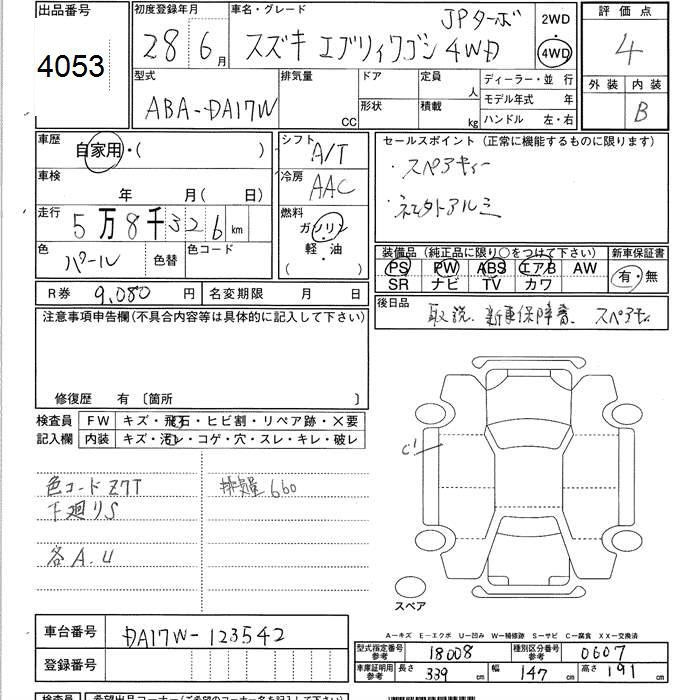 出品番号
4053
初度登録年月
28 6月
車名・グレード
JPターボ
スズキ エブリィワゴン 4WD
2WD
・
4WD
評価点
4
外装 内装
B
型式
ABA-DA17W
排気量
CC
ドア
形状
定員
人
積載
kg
ディーラー・並 行
モデル年式 年
ハンドル 左・右
車歴
自家用・( )
シフト
A/T
セールスポイント (正常に機能するものに限ります)
・スペアキー
・社外アルミ
車検
年 月( 日)
冷房
AAC
走行
5万8千326km
燃料
ガソリン
軽・油
( ・ )
色
パール
色替
色コード
装備品 (純正品に限り○をつけて下さい)
PS PW ABS エアB AW
SR ナビ TV カワ
新車保証書
有・無
R券 9,080円
名変期限 月 日
後日品
取説. 新車保障書. スペアキー
注意事項申告欄(不具合内容等は具体的に記入して下さい)
修復歴 有 〔箇所 〕
検査員
記入欄
FW キズ・飛石・ヒビ割・リペア跡・×要
内装 キズ・汚レ・コゲ・穴・スレ・キレ・破レ
色コード Z7T
下廻りS
各A.U
排気量660
C1
スペア
A-キズ E-エクボ U-凹み W-補修跡 S-サビ C-腐食 XX-交換済
車台番号 DA17W-123542
登録番号
型式指定番号
参考
18008
種別区分番号
参考
0607
車庫証明用
参考
長さ 339cm 幅 147cm 高さ 191cm